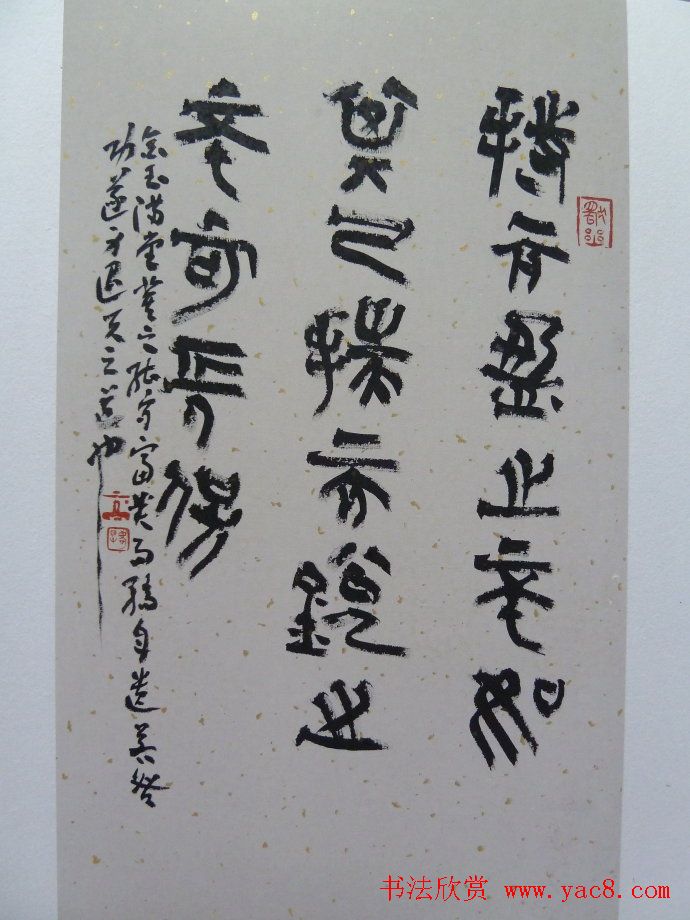 持而盈之不如
其已揣而銳之
不可長保
金玉满堂莫之能守富贵而骄自遗其咎
功遂身退天之道也
书法欣赏 www.yac8.com